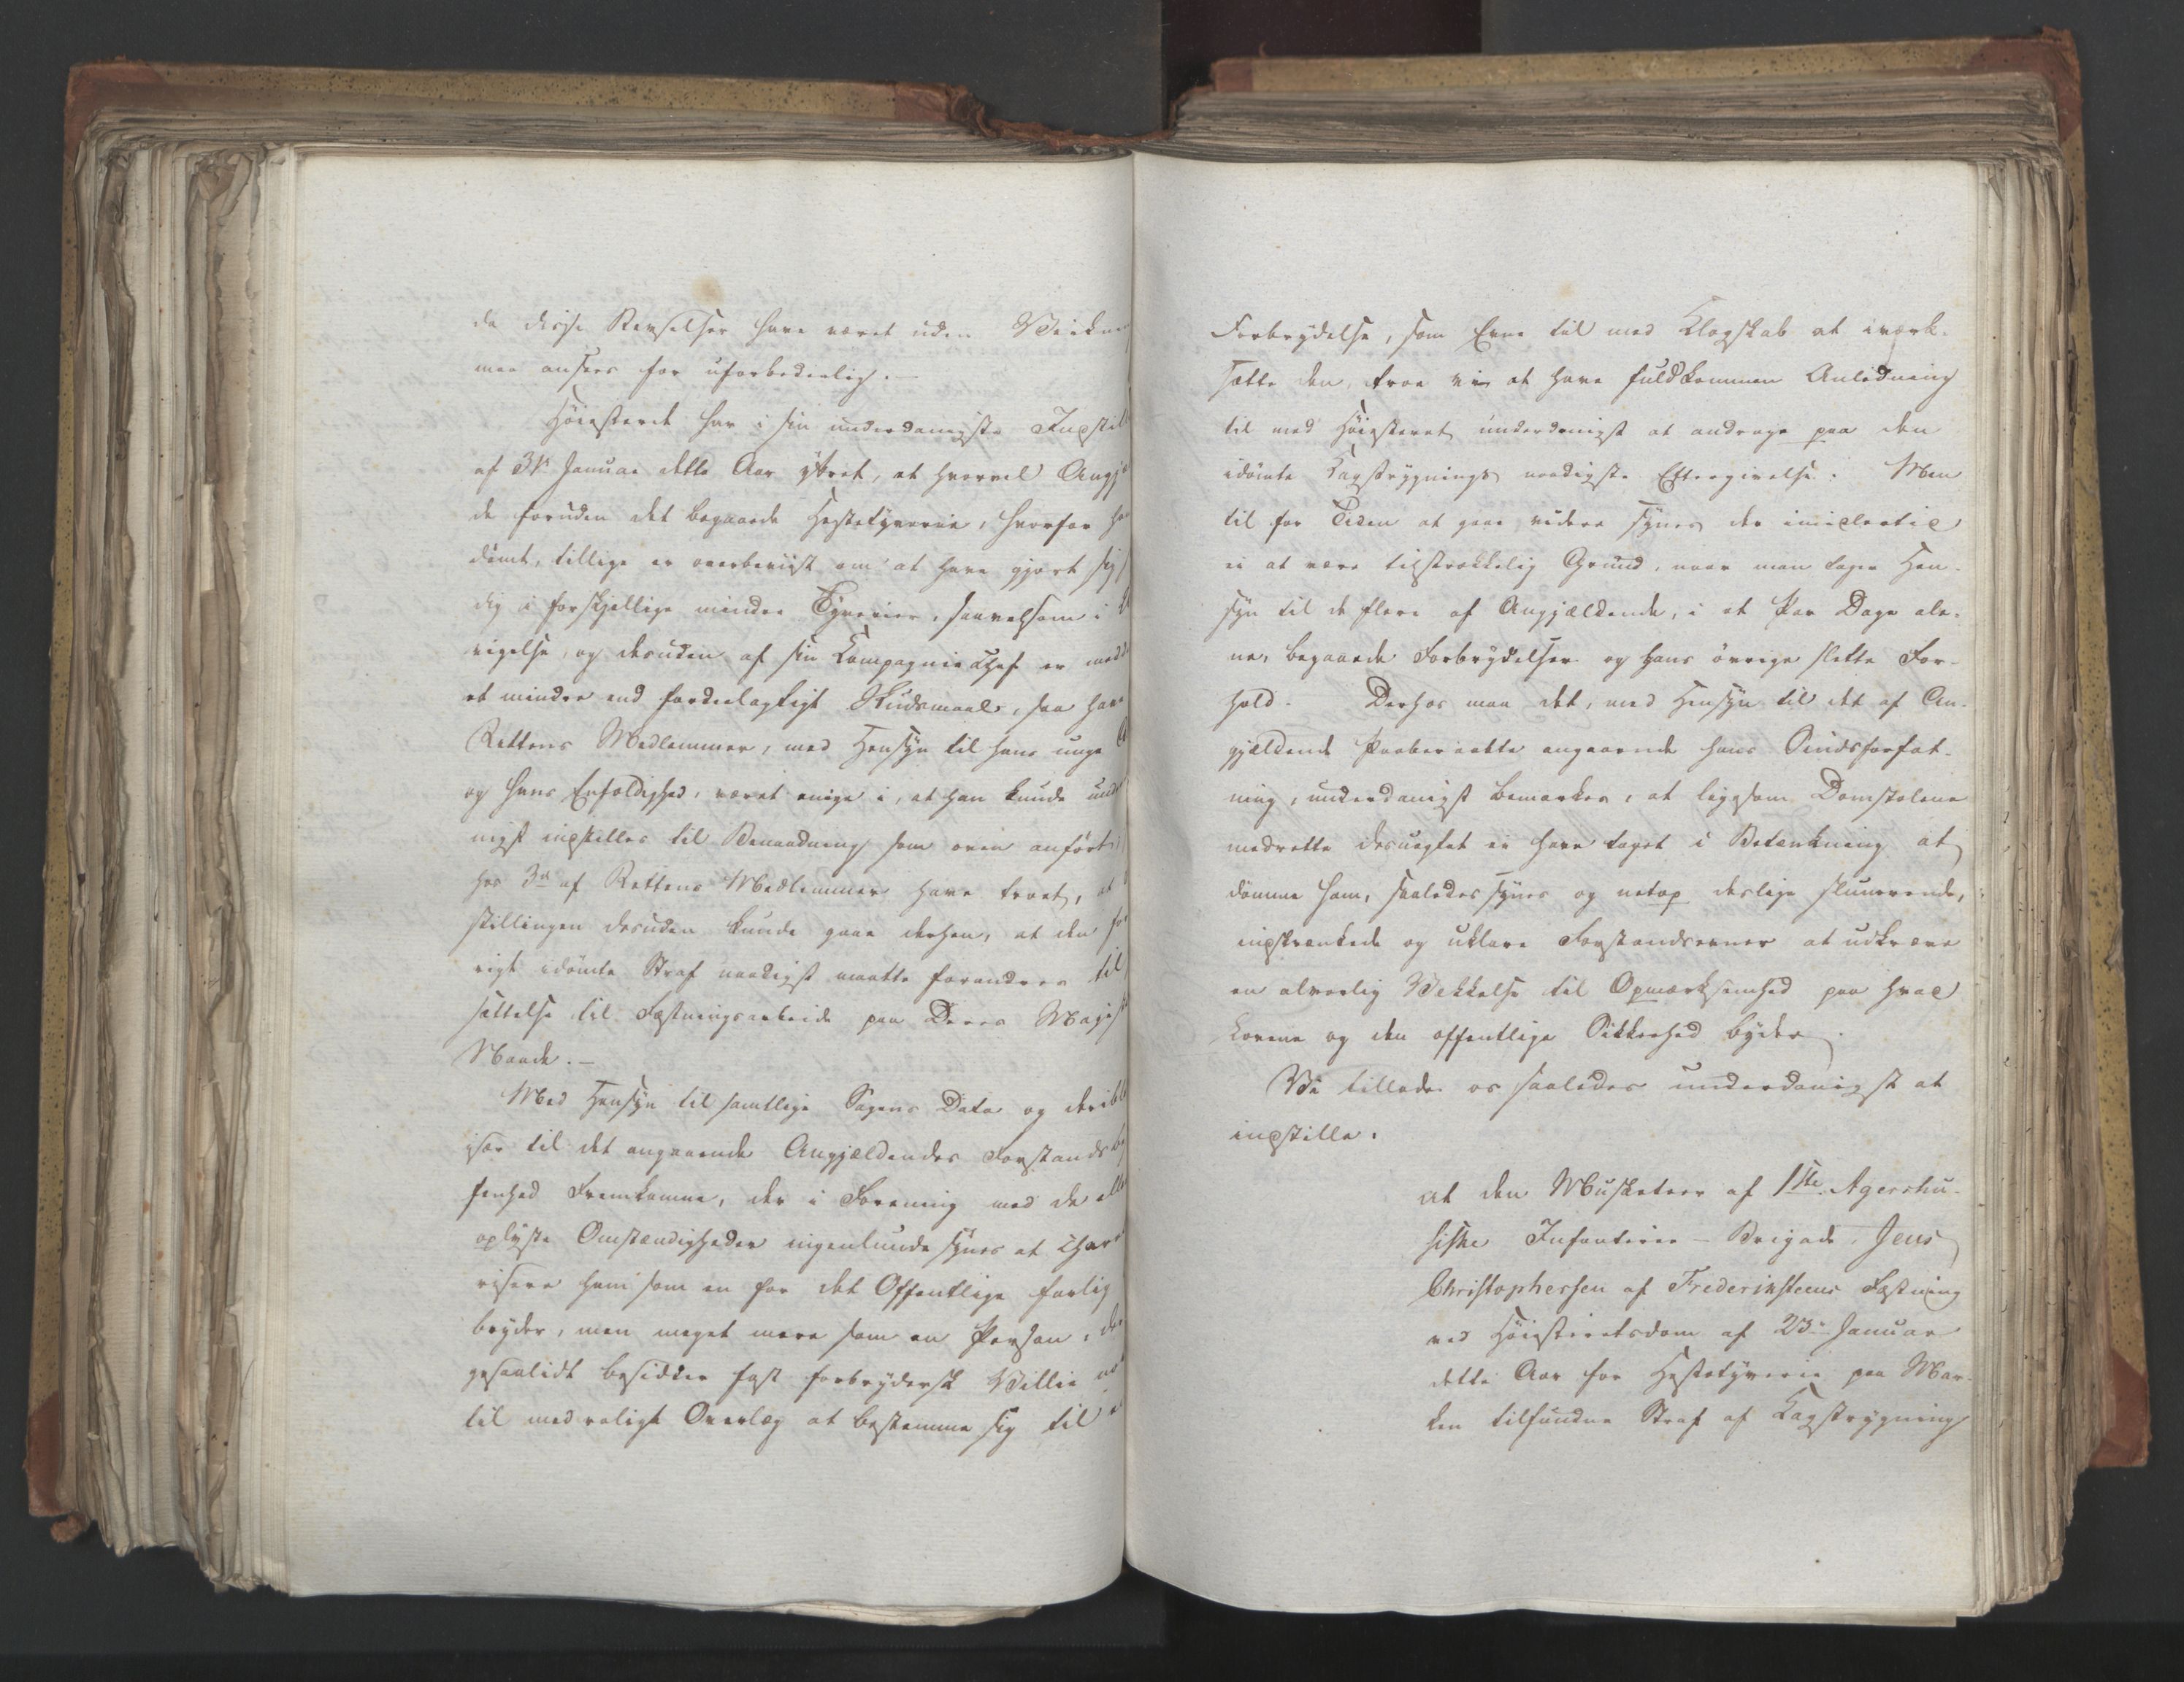 da disse Revselser have været uden Virkn
maa ansees for uforbederlig.—
Høiesteret har i sin underdanigste Indstill
af 31. Januar dette Aar yttret, at hvorvel Angj
de foruden det begaaede Hestetyverie, hvorfor ha
dømt, tillige er overbeviist om at have gjort sig
dig i forskjellige mindre Tyverier, saavelsom i
vigelse, og desuden af sin Compagniechef er medd
et mindre end fordeelagtigt Skudsmaal, saa have
Rettens Medlemmer, med Hensyn til hans unge A
og hans Enfoldighed, været enige i, at han kunde und
nigst indstilles til Benaadning som oven anført,
hos 3de af Rettens Medlemmer have troet, at
stillingen desuden kunde gaae derhen, at den for
rigt idømte Straf naadigst maatte forandres til
sættelse til Fæstningsarbeide paa Deres Majest
Naade.—
Med Hensyn til samtlige Sagens Data og deribl
især til det angaaende Angjældendes Forstandsbe
fenhed Fremkomne, der i Forening med de alle
oplyste Omstændigheder ingenlunde synes at char
risere ham som en for det Offentlige farlig
bryder, men meget mere som en Person, der
gesaalidt besidder fast forbrydersk Villie
til med roligt Overlæg at bestemme sig til
Forbrydelse, som Evne til med Klogskab at iværk-
sætte den, troe vi at have fuldkommen Anledning
til med Høiesteret underdanigst at andrage paa den
idømte Kagstrygnings naadigste Eftergivelse. Men
til for Tiden at gaae videre synes der imidlertid
ei at være tilstrækkelig Grund, naar man tager Hen-
syn til de flere af Angjældende, i et Par Dage ale-
ne, begaaede Forbrydelser og hans øvrige slette For-
hold. Derhos maa det, med Hensyn til det af An-
gjældende Paaberaabte angaaende hans Sindsforfat-
ning, underdanigst bemærkes, at ligesom Domstolene
medrette desuagtet ei have taget i Betænkning at
dømme ham, saaledes synes og netop deslige slumrende,
indskrænkede og uklare Forstandsevner at udkræve
en alvorlig Vækkelse til Opmærksomhed paa hvad
Lovene og den offentlige Sikkerhed byder.
Vi tillade os saaledes underdanigst at
indstille:
at den Musketeer af 1ste Agershu-
siske Infanterie-Brigade, Jens
Christophersen af Frederiksteens Fæstning
ved Høiesteretsdom af 23de Januar
dette Aar for Hestetyverie paa Mar-
ken tilfundne Straf af Kagstrygning